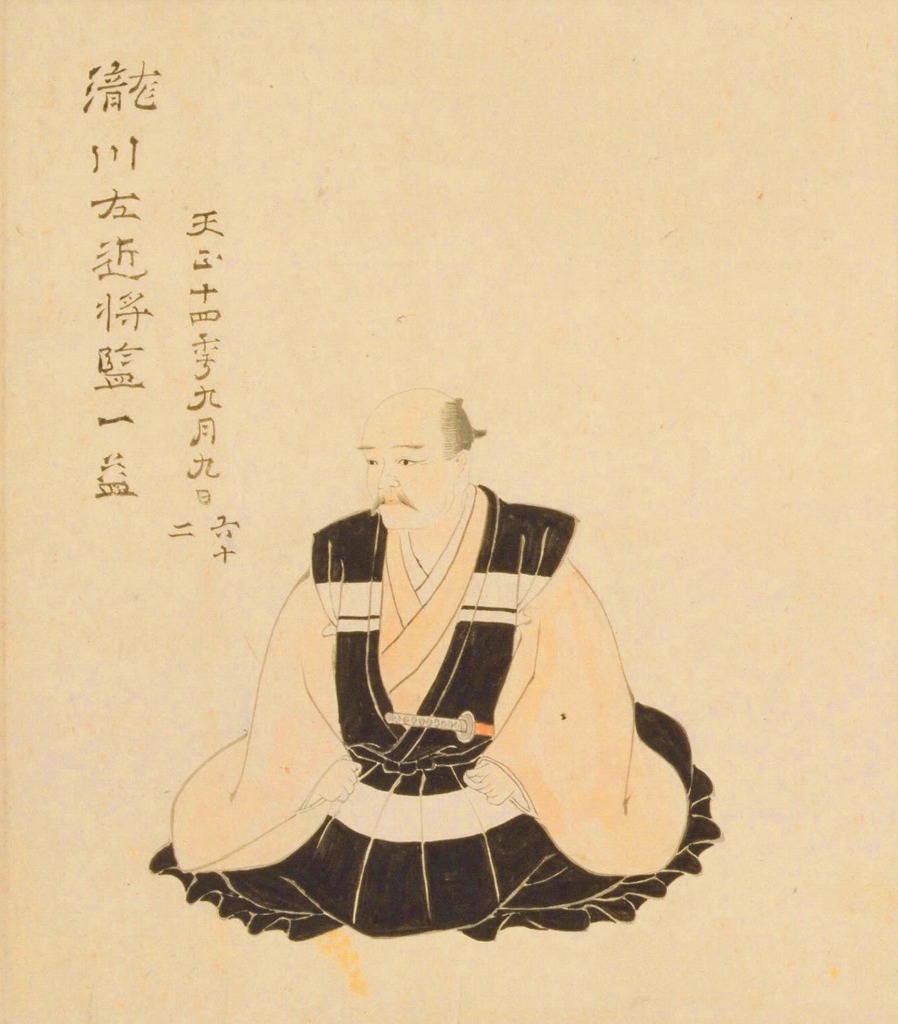 瀧川左近将監一益
天正十四季九月九日
六十
二